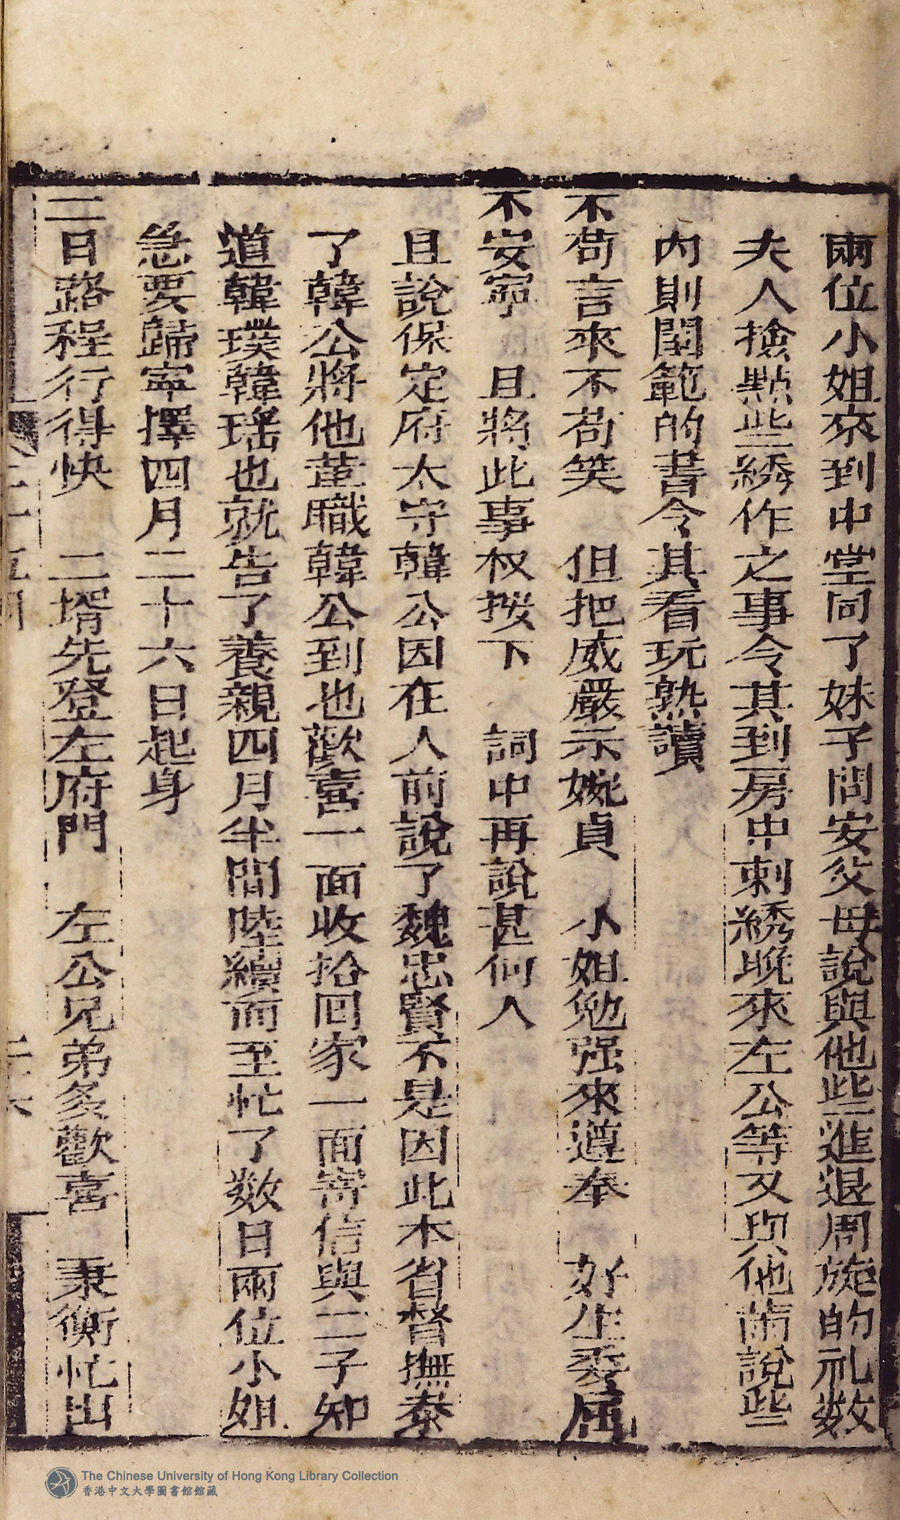 兩位小姐來到中堂同了妹子問安父母說與他些進退周旋的礼数
夫人撿點些綉作之事令其到房中刺綉晚來左公等又與他萳說些
內則閨範的書令其看玩熟讀
不苟言來不苟笑 但把威嚴示婉貞 小姐勉强來遵奉 好生委屈
不安寧 且將此事权按下 詞中再說甚何人
且說保定府太守韓公因在人前說了魏忠賢不是因此本省督撫泰
了韓公將他革職韓公到也歡喜一面收拾回家一面寄信與二子知
道韓璞韓瑤也就告了養親四月半間陸續而至忙了数日兩位小姐
急要歸寧擇四月二十六日起身
二日路程行得快 二壻先登左府門 左公兄弟多歡喜 秉衡忙出
The Chinese University of Hong Kong Library Collection
香港中文大學圖書館館藏